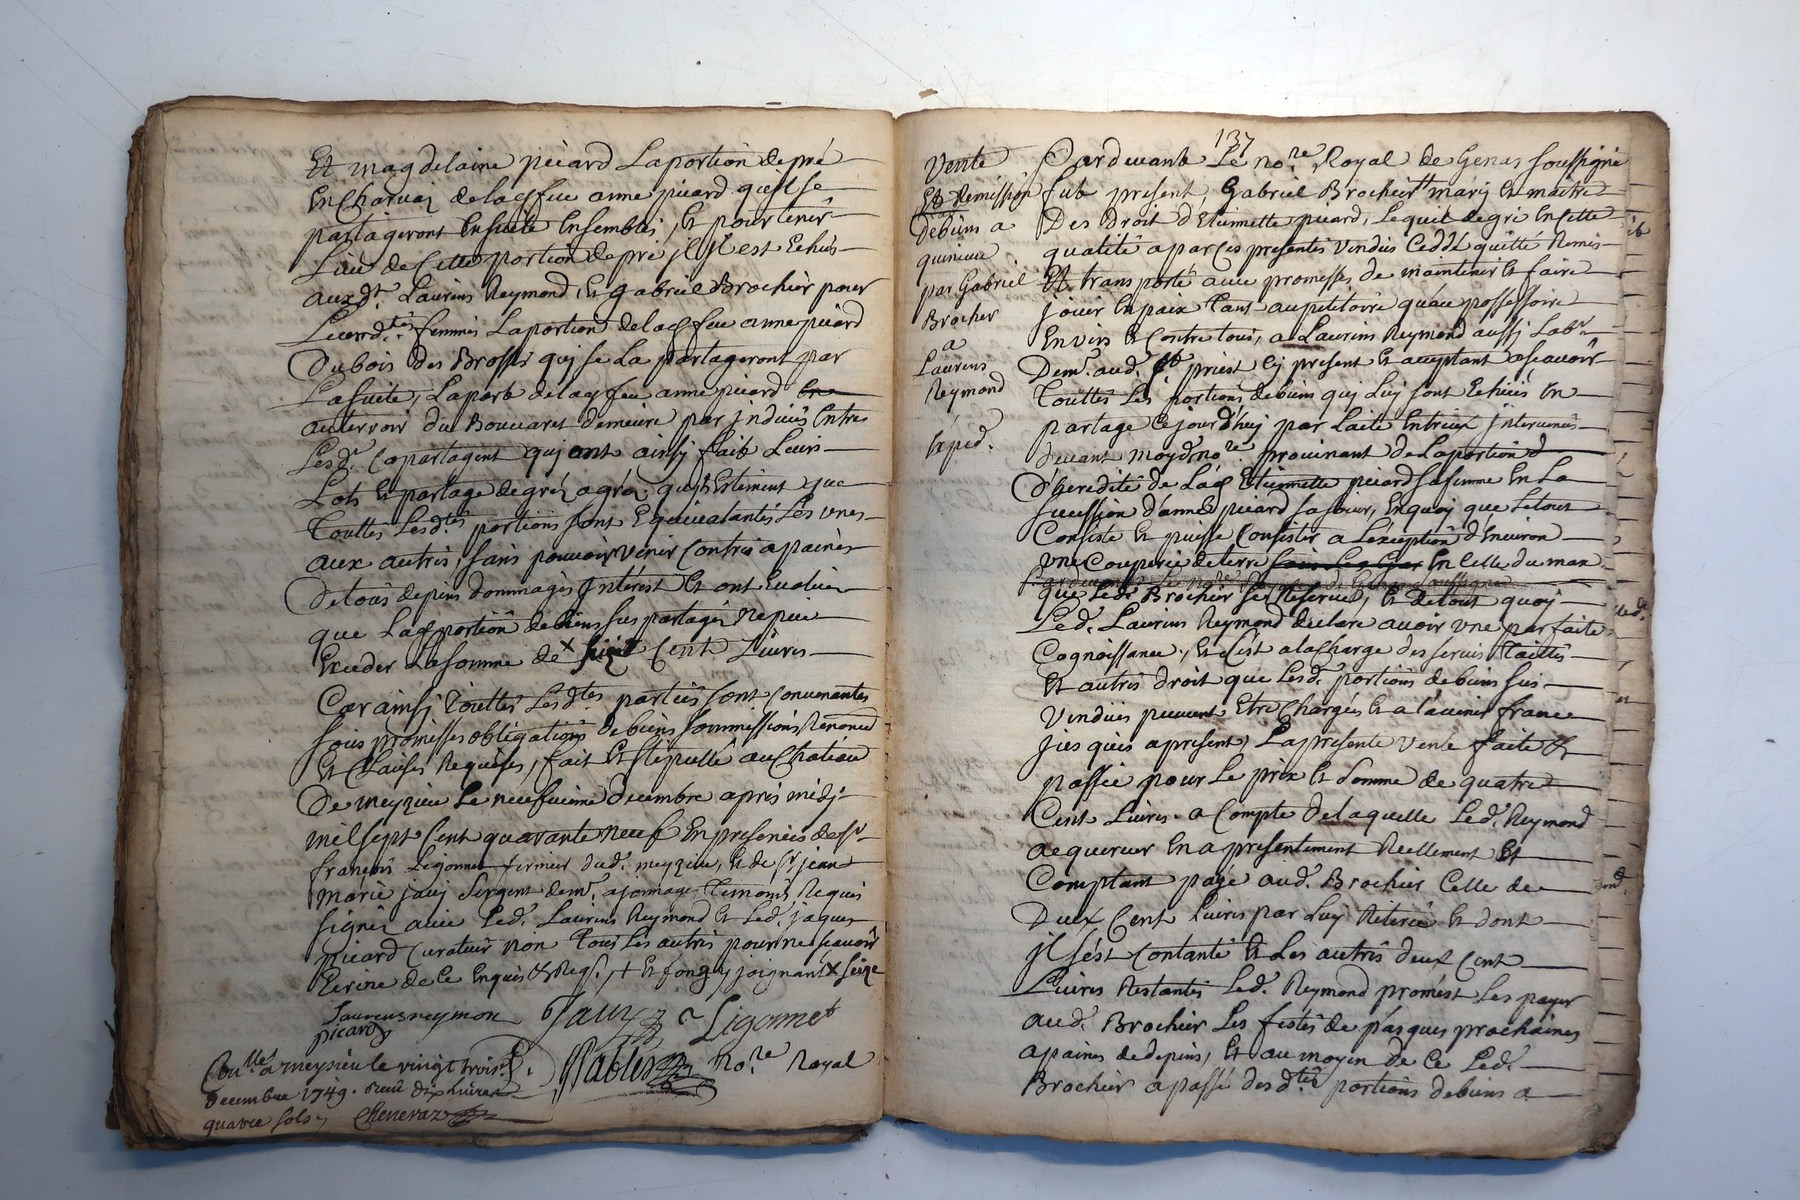 Et magdelaine picard Laportion depré
En Charvaz delad feue anne picard qu'ils se
partageront Ensuite Ensembles, Et pour tenir
Lieu de Cette portion depré jl s'est Echus
auxdt. Laurens Reymond, Et gabriel Brochier pour
Leursdtes femmes Laportion delad feue anne picard
Dubois des Brosses quj se La partageront par
Lasuite, Laparb delad feue anne picard
auterroir du Bouvaret demeure par jndivis Entre
Lesd. Copartageant quj ont ainsj faib Leurs
Lots Et partage degréz agréz qu'ils Estiment que
Touttes Lesdtes portions sont Equivalantes Les unes
aux autres, sans pouvoir venir Contre apaines
Detous depens dommages Interest Et ont Evaluer
que Lad portion debiens sus partagés Ne peut
Exceder Lasomme de x Cent Livres
Car ainsj Touttes Lesdtes parties sont Convenantes
sous promesses obligations debiens sommissions Renonced
Et Clauses Requises, fait Et stipullé au Chateau
De meyzieu Le neufvieme decembre après midj
mil sept Cent quarante neuf En presences de sr
françois Ligonnet fermier dud. meyzieu, Et de sr jean
marie jauj sergent demt. ajonnage Temoins Requis
signés avec Led. Laurens Reymond Et Led. jaques
picard Curateur non Tous Les autres pour ne scavoir
Ecrire de Ce Enquis & Reqs. + Et joignant x seize
Laurens reymon Jauy Ligonnet
picard
Conllé a meysieu le vingt trois No.re Royal
decembre 1749. Receu dix huict
quatre sols Cheneraz
137
Vente
Et Remission
debiens a
par Gabriel
Brocher
a
Laurens
Reymond
Exped.
Pardevant Le no.re Royal de Genas soussigné
fut present, Gabriel Brochier mary Et maitre
Des Droit d'Etiennette picard, Lequel degré En cette
qualité a par Ces presentes Vendus Ceddé quitté Remis
Et transporté avec promesses, de maintenir Et faire
jouir En paix Tant aupetitoire qu'au possessoire
Envers Et Contre tous, a Laurens Reymond aussj Labr.
Demt. aud. st priest Cy present Et acceptant ascavoir
Touttes Les portions debiens quj Luy sont Echuës En
partage Ce jourd'huj par L'acte Entreux jntervenus
devant moydno.re provenant deLaportion
D'heredité de Lad Etiennette picard safemme En La
succession d'anne picard sa sœur, En quoy que Letout
Consiste Et puisse Consister a L'exception d'Environ
une Couperée de terre En Celle dumas
que Led. Brochier se Reserve, Et detout quoy
Led. Laurens Reymond declare avoir une parfaite
Cognoissance, Et C'est alaCharge des servis Tailles
Et autres droit que Lesd. portions debiens sus
Venduës peuvent Etre Chargées Et al'avenir franc
jusques apresent, Lapresente vente faite &
passée pour Le prix Et somme de quatre
Cent Livres a Compte delaquelle Led. Reymond
acquereur En a presentement Reellement Et
Comptant payé aud. Brochier Celle de
Deux Cent Livres par Luy Retirée Et dont
jl s'est Contanté Et Les autres deux Cent
Livres Restantes Led. Reymond promest Les payer
aud. Brochier Les festes de pasques prochaines
apaines dedepens, Et au moyen de Ce Led.
Brochier apassé desdtes portions debiens a